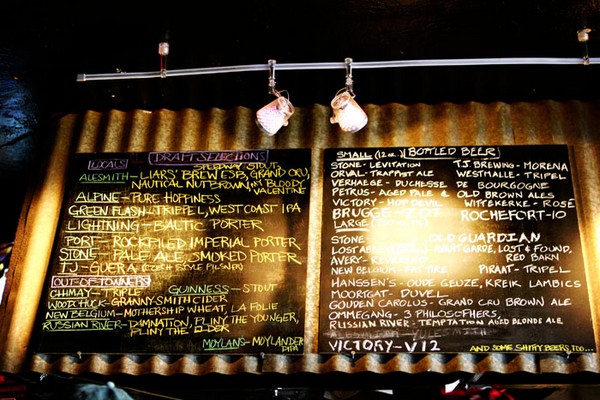 LOCALS DRAFT SELECTIONS
SPEEDWAY STOUT
ALESMITH - LIARS' BREW ESB, GRAND CRU,
NAUTICAL NUT BROWN, MY BLOODY
VALENTINE
ALPINE - PURE HOPPINESS
GREEN FLASH - TRIPEL, WEST COAST IPA
LIGHTNING - BALTIC PORTER
PORT - ROCKPILED IMPERIAL PORTER
STONE - PALE ALE, SMOKED PORTER
TJ - GUERA (CZECH STYLE PILSNER)
OUT OF TOWNERS
CHIMAY - TRIPLE GUINNESS - STOUT
WOODCHUCK - GRANNY SMITH CIDER
NEW BELGIUM - MOTHERSHIP WHEAT, LA FOLIE
RUSSIAN RIVER - DAMNATION, PLINY THE YOUNGER,
PLINY THE ELDER
MOYLANS - MOYLANDER
DIPA
SMALL (12 oz.) BOTTLED BEER
STONE - LEVITATION T.J. BREWING - MORENA
ORVAL - TRAPPIST ALE WESTMALLE - TRIPEL
VERHAEGE - DUCHESSE DE BOURGOGNE
PETRUS - AGED PALE & OLD BROWN ALES
VICTORY - HOP DEVIL WITTEKERKE - ROSÉ
BRUGGE - ZOT ROCHEFORT-10
LARGE
STONE OLD GUARDIAN
LOST AVANT GARDE, LOST & FOUND,
AVERY - RED BARN
NEW BELGIUM - FAT TIRE PIRAAT - TRIPEL
HANSSEN'S - OUDE GEUZE, KREIK LAMBICS
MOORTGAT - DUVEL
GOUDEN CAROLUS - GRAND CRU BROWN ALE
OMMEGANG - 3 PHILOSOPHERS,
RUSSIAN RIVER - TEMPTATION AGED BLONDE ALE
VICTORY - V12
AND SOME SHITTY BEERS, TOO...